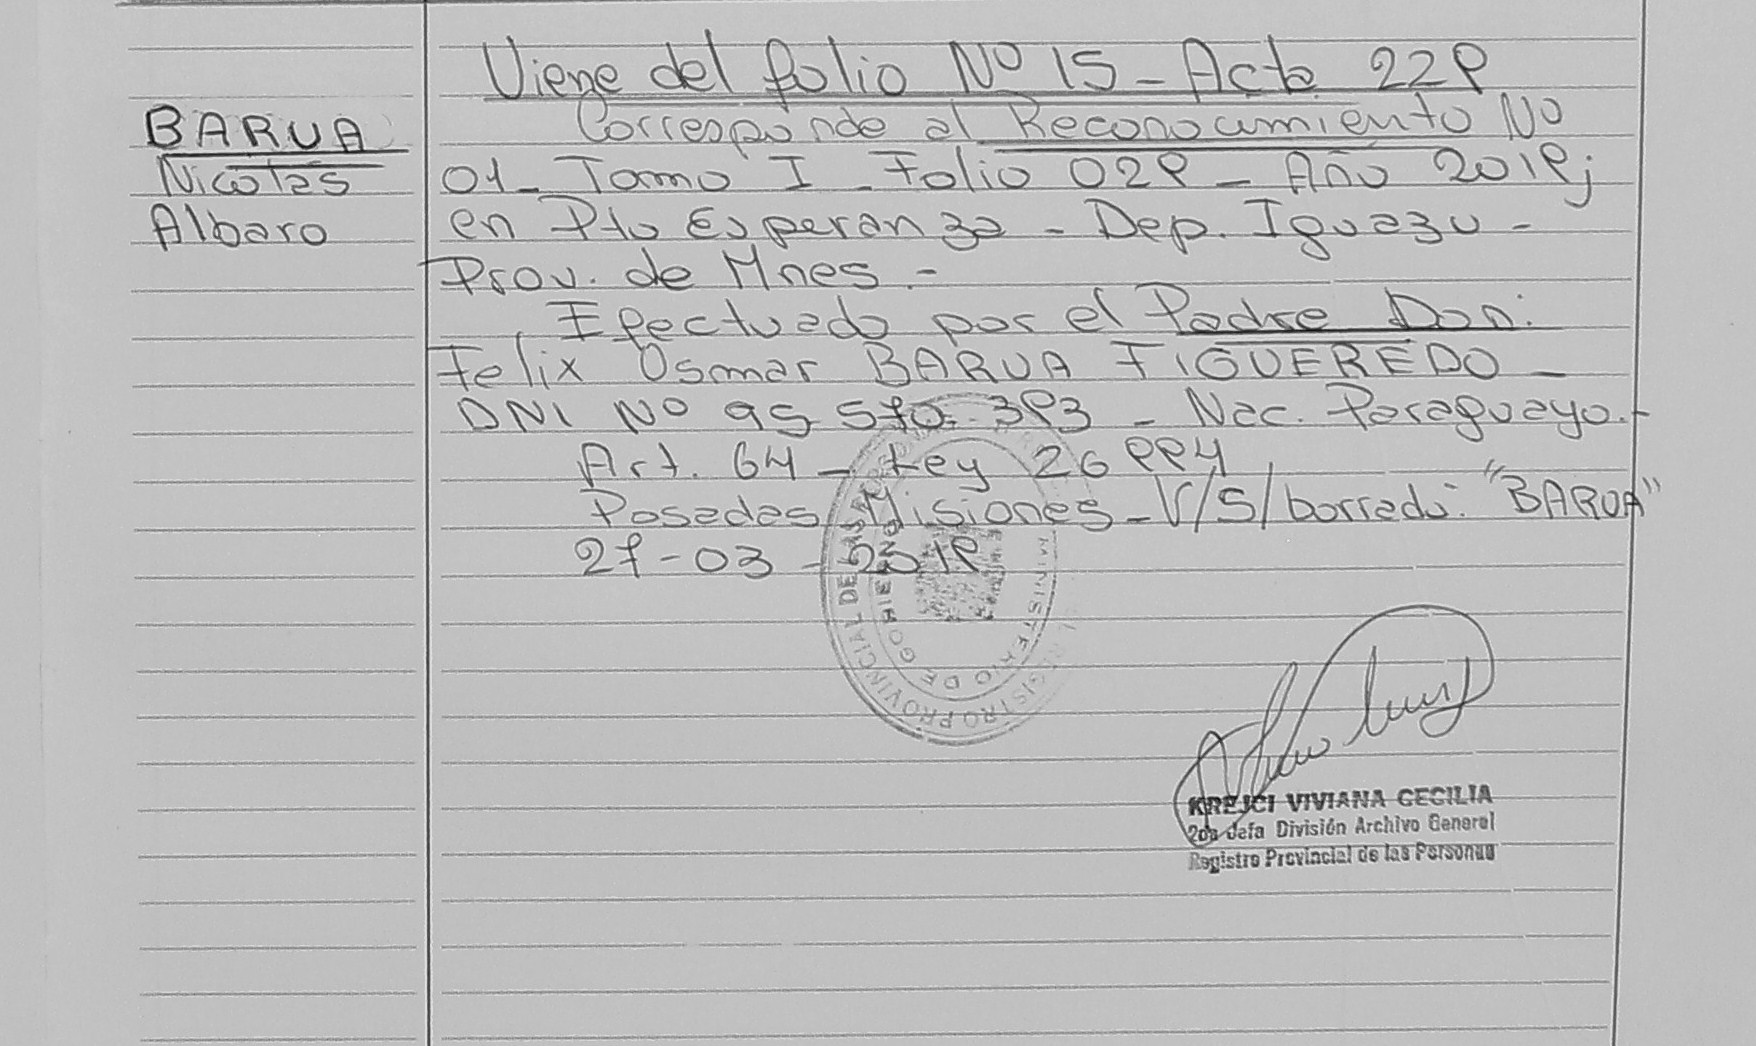 Viene del folio Nº 15 - Acta 229
BARUA
Nicolas
Albaro
Corresponde al Reconocimiento Nº
01 - Tomo I - Folio 029 - Año 2019;
en Pto Esperanza - Dep. Iguazu -
Prov. de Mnes. -
Efectuado por el Padre Don:
Felix Osmar BARUA FIGUEREDO -
DNI Nº 95 570. 393 - Nac. Paraguayo. -
Art. 64 - Ley 26 994
Posadas, Misiones - V/S/borrado: "BARUA"
27-03-2019
REGISTRO PROVINCIAL DE LAS
MINISTERIO DE GOBIERNO
KREJCI VIVIANA CECILIA
2da Jefa División Archivo General
Registro Provincial de las Personas